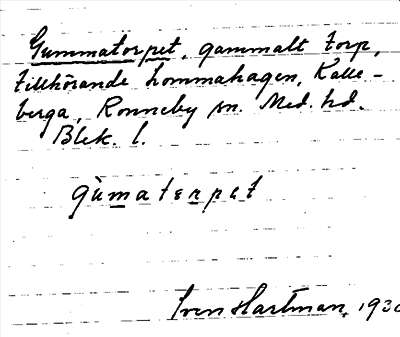 Gummatorpet, gammalt torp,
tillhörande Lommahagen, Kalle-
berga, Ronneby sn. Med. hd.
Blek. l.
gùmatɛrpɛt
Sven Hartman, 193